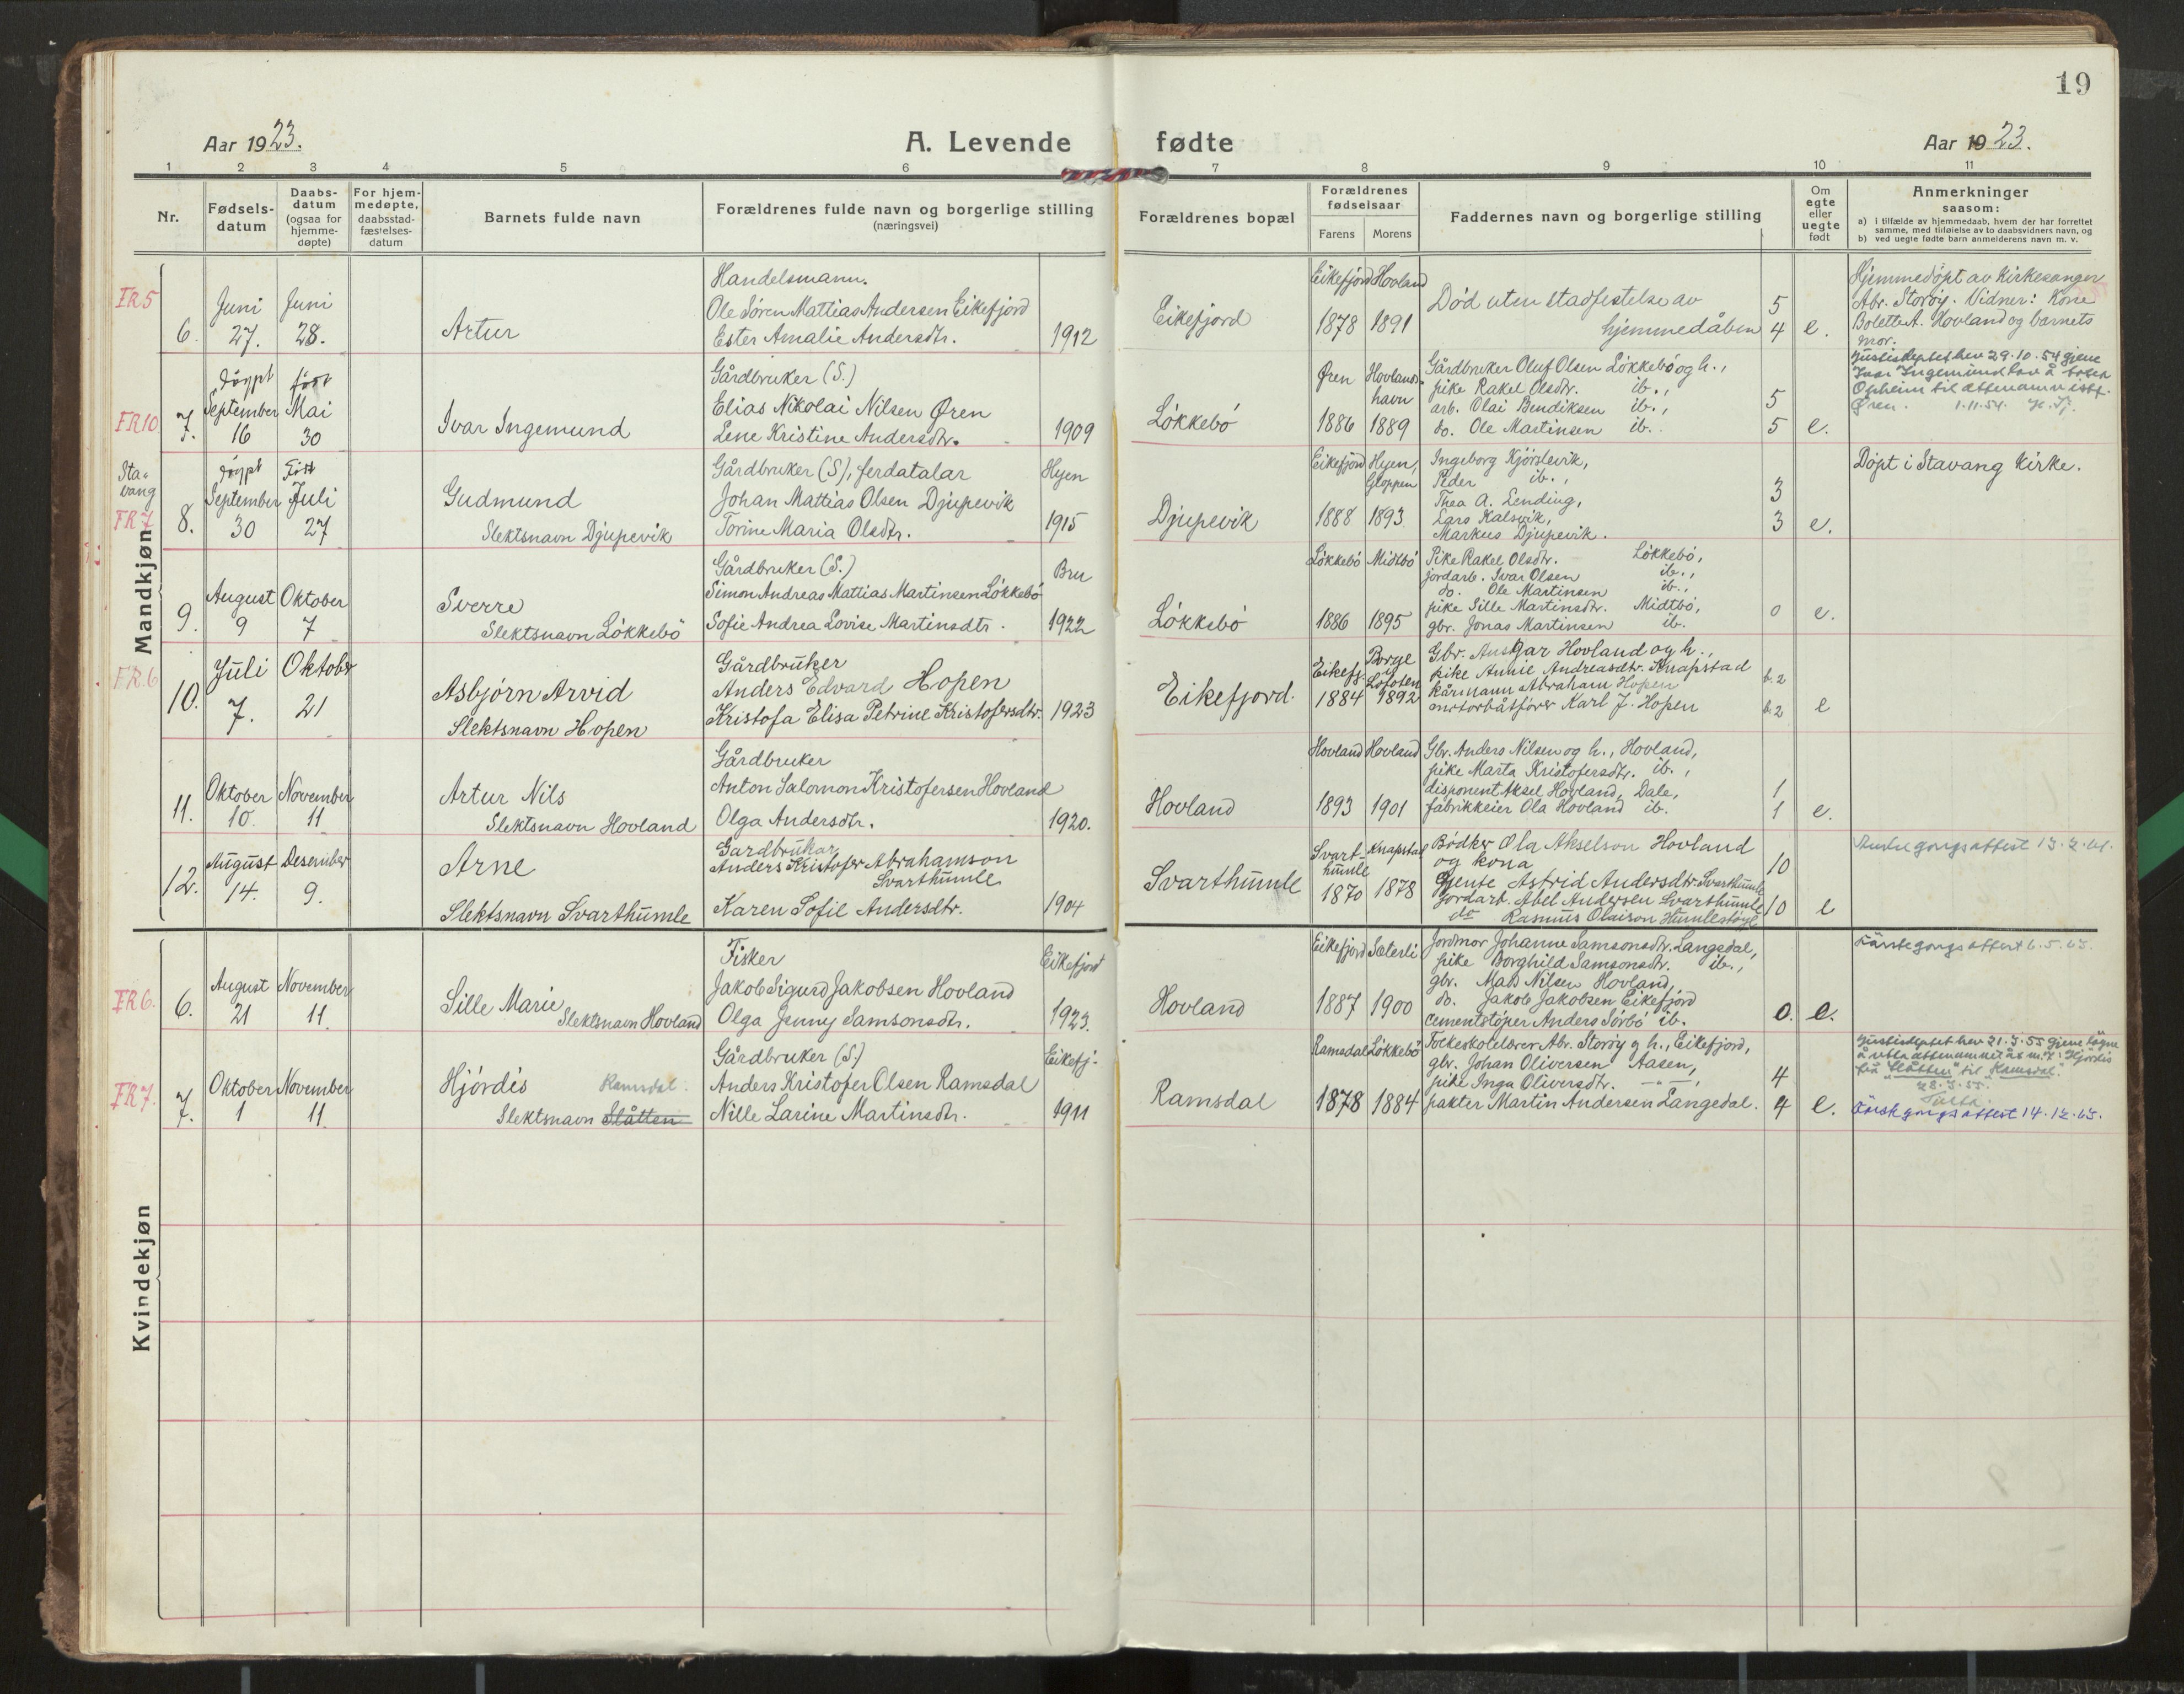 19
Aar 1923.
A. Levende fødte
Aar 1923.
1 2 3 4 5 6 7 8 9 10 11
Nr.
Fødsels-
datum
Daabs-
datum
(ogsaa for
hjemme-
døpte)
For hjem-
medøpte,
daabsstad-
fæstelses-
datum
Barnets fulde navn
Forældrenes fulde navn og borgerlige stilling
(næringsvei)
Forældrenes bopæl
Forældrenes
fødselsaar
Farens Morens
Faddernes navn og borgerlige stilling
Om
egte
eller
uegte
født
Anmerkninger
saasom:
a) I tilfælde av hjemmedaab, hvem der har forrettet
samme, med tilføielse av to daabsvidners navn, og
b) ved uegte fødte barn anmelderens navn m. v.
Mandkjøn
FR5
6.
Juni
27.
Juni
28.
Artur
Handelsmann.
Ole Sören Mattias Andersen Eikefjord
Ester Amalie Andersdtr.
1912
Eikefjord
Eikefjord Hovland
1878 1891
Död uten stadfestelse av
hjemmedåben
5
4
e.
Hjemmedöpt av Kirkesanger
Abr. Storöy. Vidner: Kone
Bolette A. Hovland og barnets
mor.
FR10
7.
döypt
September
16
födt
Mai
30
Ivar Ingemund
Gårdbruker (S.)
Elias Nikolai Nilsen Øren
Lene Kristine Andersdtr.
1909
Lökkebö
Øren Hovlands-
havn
1886 1889
Gårdbruker Oluf Olsen Lökkebö og h.,
pike Rakel Olsdtr. ib.,
arb. Olai Bendiksen ib.,
do. Ole Martinsen ib.
5
5
e.
Justisdeptet hev 29.10.54 gjeve
Ivar Ingemund lov å
Opheim til ættenamn istf.
Øren. 1.11.54.
Sta-
vang
FR7
8.
döypt
September
30
Födt
Juli
27
Gudmund
Slektsnavn Djupevik
Gårdbruker (S), ferdatalar
Johan Mattias Olsen Djupevik
Torine Maria Olsdtr.
Hyen
1915
Djupevik
Eikefjord Hyen,
Gloppen
1888 1893
Ingeborg Kjörslevik,
Peder ib.,
Thea A. Lending,
Lars Kalsvik,
Markus Djupevik.
3
3
e.
Döpt i Stavang Kirke.
9.
August
9
Oktober
7
Sverre
Slektsnavn Lökkebö
Gårdbruker (S.)
Simon Andreas Mattias Martinsen Lökkebö
Sofie Andrea Lovise Martinsdtr.
Bru
1922
Lökkebö
Lökkebö Midtbö
1886 1895
Pike Rakel Olsdtr. Lökkebö,
jordarb. Ivar Olsen ib.,
do. Ole Martinsen ib.,
pike Sille Martinsdtr. Midtbö,
gbr. Jonas Martinsen ib.
0
e.
FR.6
10.
Juli
7.
Oktober
21
Asbjörn Arvid
Slektsnavn Hopen
Gårdbruker
Anders Edvard Hopen
Kristofa Elisa Petrine Kristofersdtr.
1923
Eikefjord.
Eikefj. Borge
i Lofoten
1884 1892
Gbr. Ansgar Hovland og h.,
pike Annie Andreasdtr. Knapstad
kårmann Abraham Hopen
motorbåtförer Karl J. Hopen
b.2
b.2
e
11.
Oktober
10.
November
11
Artur Nils
Slektsnavn Hovland
Gårdbruker
Anton Salomon Kristofersen Hovland
Olga Andersdtr.
1920.
Hovland
Hovland Hovland
1893 1901
Gbr. Anders Nilsen og h., Hovland,
pike Marta Kristofersdtr. ib.,
disponent Aksel Hovland, Dale,
fabrikkeier Ola Hovland ib.
1
1
e.
12.
August
14.
Desember
9.
Arne
Slektsnavn Svarthumle
Gardbrukar
Anders Kristofer Abrahamson
Svarthumle
Karen Sofie Andersdtr.
1904
Svarthumle
Svart-
humle
Knapstad
1870 1878
Bødker Ola Akselson Hovland
og kona
Gjente Astrid Andersdtr. Svarthumle
Jordarb. Abel Andersen Svarthumle
do Rasmus Olaison Humlestøyl
10
10
e
Kvindekjøn
FR6.
6.
August
21
November
11
Sille Marie
Slektsnavn Hovland
Fisker
Jakob Sigurd Jakobsen Hovland
Olga Jenny Samsonsdtr.
Eikefjord
1923.
Hovland
Eikefjord Sæterli
1887 1900
Jordmor Johanne Samsonsdtr. Langedal,
pike Borghild Samsonsdtr. ib.,
gbr. Mads Nilsen Hovland,
do. Jakob Jakobsen Eikefjord
cementstöper Anders Sörbö ib.
0.
e.
FR7.
7.
Oktober
1
November
11
Hjördis Ramsdal.
Slektsnavn Slåtten
Gårdbruker (S.)
Anders Kristofer Olsen Ramsdal
Nille Larine Martinsdtr.
Eikefj.
1911
Ramsdal
Ramsdal Lökkebö
1878 1884
Folkeskolelærer Abr. Storöy og h., Eikefjord,
gbr. Johan Oliversen Aasen,
pike Inga Oliversdtr. -"-,
pakter Martin Andersen Langedal.
4
4
e.
Justisdeptet hev 21.3.55 gjeve
frå "Slåtten" til "Ramsdal".
28.3.55.